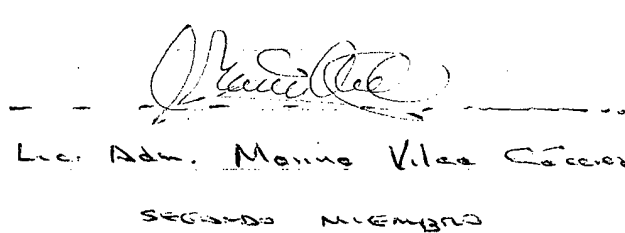 Lic. Adm. Marino Vilca Cáceres
SEGUNDO MIEMBRO